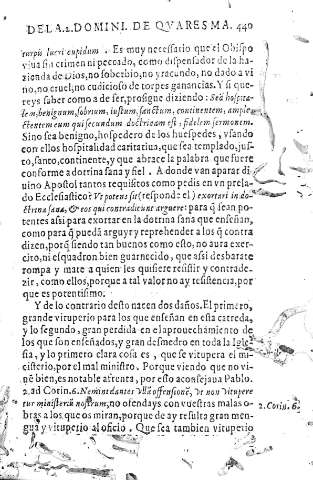 DE LA .2. DOMINI. DE QVARESMA. 440
turpis lucri cupidum. Es muy necesario que el Obispo
viua sin crimen ni peccado, como dispensador de la ha-
zienda de Dios, no soberbio, no yracundo, no dado a vi
no, no cruel, no cudicioso de torpes ganancias. Y si que-
reys saber como a de ser, prosigue diziendo: Sed hospita-
lem, benignum, sobrium, iustum, sanctum, continentem, ample
ctentem eum qui secundum doctrinam est, fidelem sermonem.
Sino sea benigno, hospedero de los huespedes, vsando
con ellos hospitalidad caritatiua, que sea templado, jus-
to, santo, continente, y que abrace la palabra que fuere
conforme a dotrina sana y fiel. A donde van aparar di-
uino Apostol tantos requisitos como pedis en vn prela-
do Ecclesiastico? Vt potens sit (responde el) exortari in do-
ctrina sana, & eos qui contradicunt arguere: para q̃ sean po-
tentes assi para exortar en la dotrina sana que enseñan,
como para q̃ pueda arguyr y reprehender a los q̃ contra
dizen, porq̃ siendo tan buenos como esto, no aura exer-
cito, ni esquadron bien guarnecido, que assi desbarate
rompa y mate a quien les quisiere resistir y contrade-
zir, como ellos, porque a tal valor no ay resistencia, por
que es potentisimo.
Y de lo contrario desto nacen dos daños. El primero,
grande vituperio para los que enseñan en esta catreda,
y lo segundo, gran perdida en el aprouechamiento de
los que son enseñados, y gran desmedro en toda la Igle
sia, y lo primero clara cosa es, que se vitupera el mi-
nisterio, por el mal ministro. Porque viendo que no vi-
uẽ bien, es notable afrenta, por esto aconsejaua Pablo.
2. ad Corin. 6. Nemini dantes vllã offensionẽ, vt non vitupere
tur ministeriũ nostrum, no ofendays con vuestras malas o-
bras a los que os miran, porque de ay resulta gran men-
gua y vituperio al oficio. Que sea tambien vituperio
2. Corin. 6.